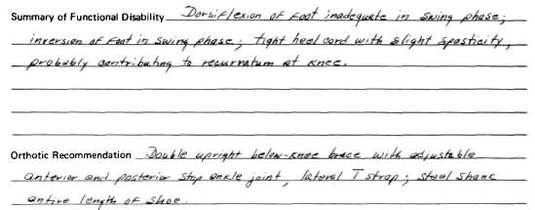 Summary of Functional Disability Dorsiflexion of foot inadequate in swing phase;
inversion of foot in swing phase; tight heel cord with slight spasticity,
probably contributing to recurvatum at knee.
Orthotic Recommendation Double upright below-knee brace with adjustable
anterior and posterior stop ankle joint, lateral T strap; steel shank
entire length of shoe.